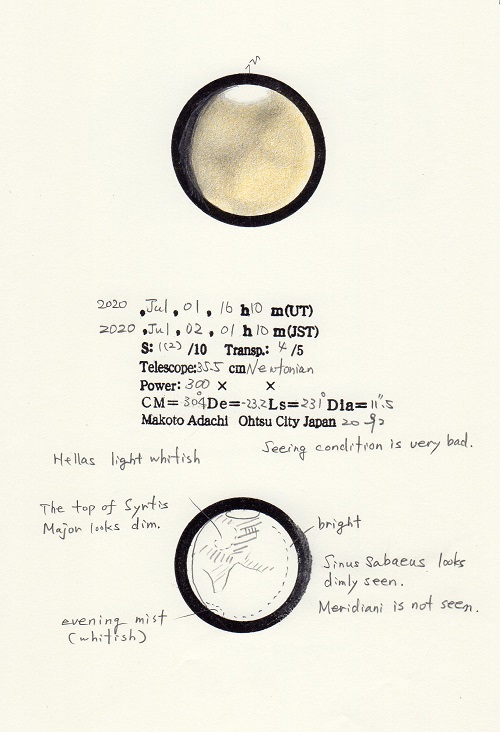 2020 , Jul , 01 , 16 h 10 m (UT)
2020 , Jul , 02 , 01 h 10 m (JST)
S: 1(2) /10 Transp.: 4 /5
Telescope: 35.5 cm Newtonian
Power: 300 × ×
CM= 304° De= -23.2 Ls= 231° Dia= 11".5
Makoto Adachi Ohtsu City Japan
Seeing condition is very bad.
Hellas light whitish
The top of Syrtis
Major looks dim.
bright
Sinus Sabaeus looks
dimly seen.
Meridiani is not seen.
evening mist
(whitish)